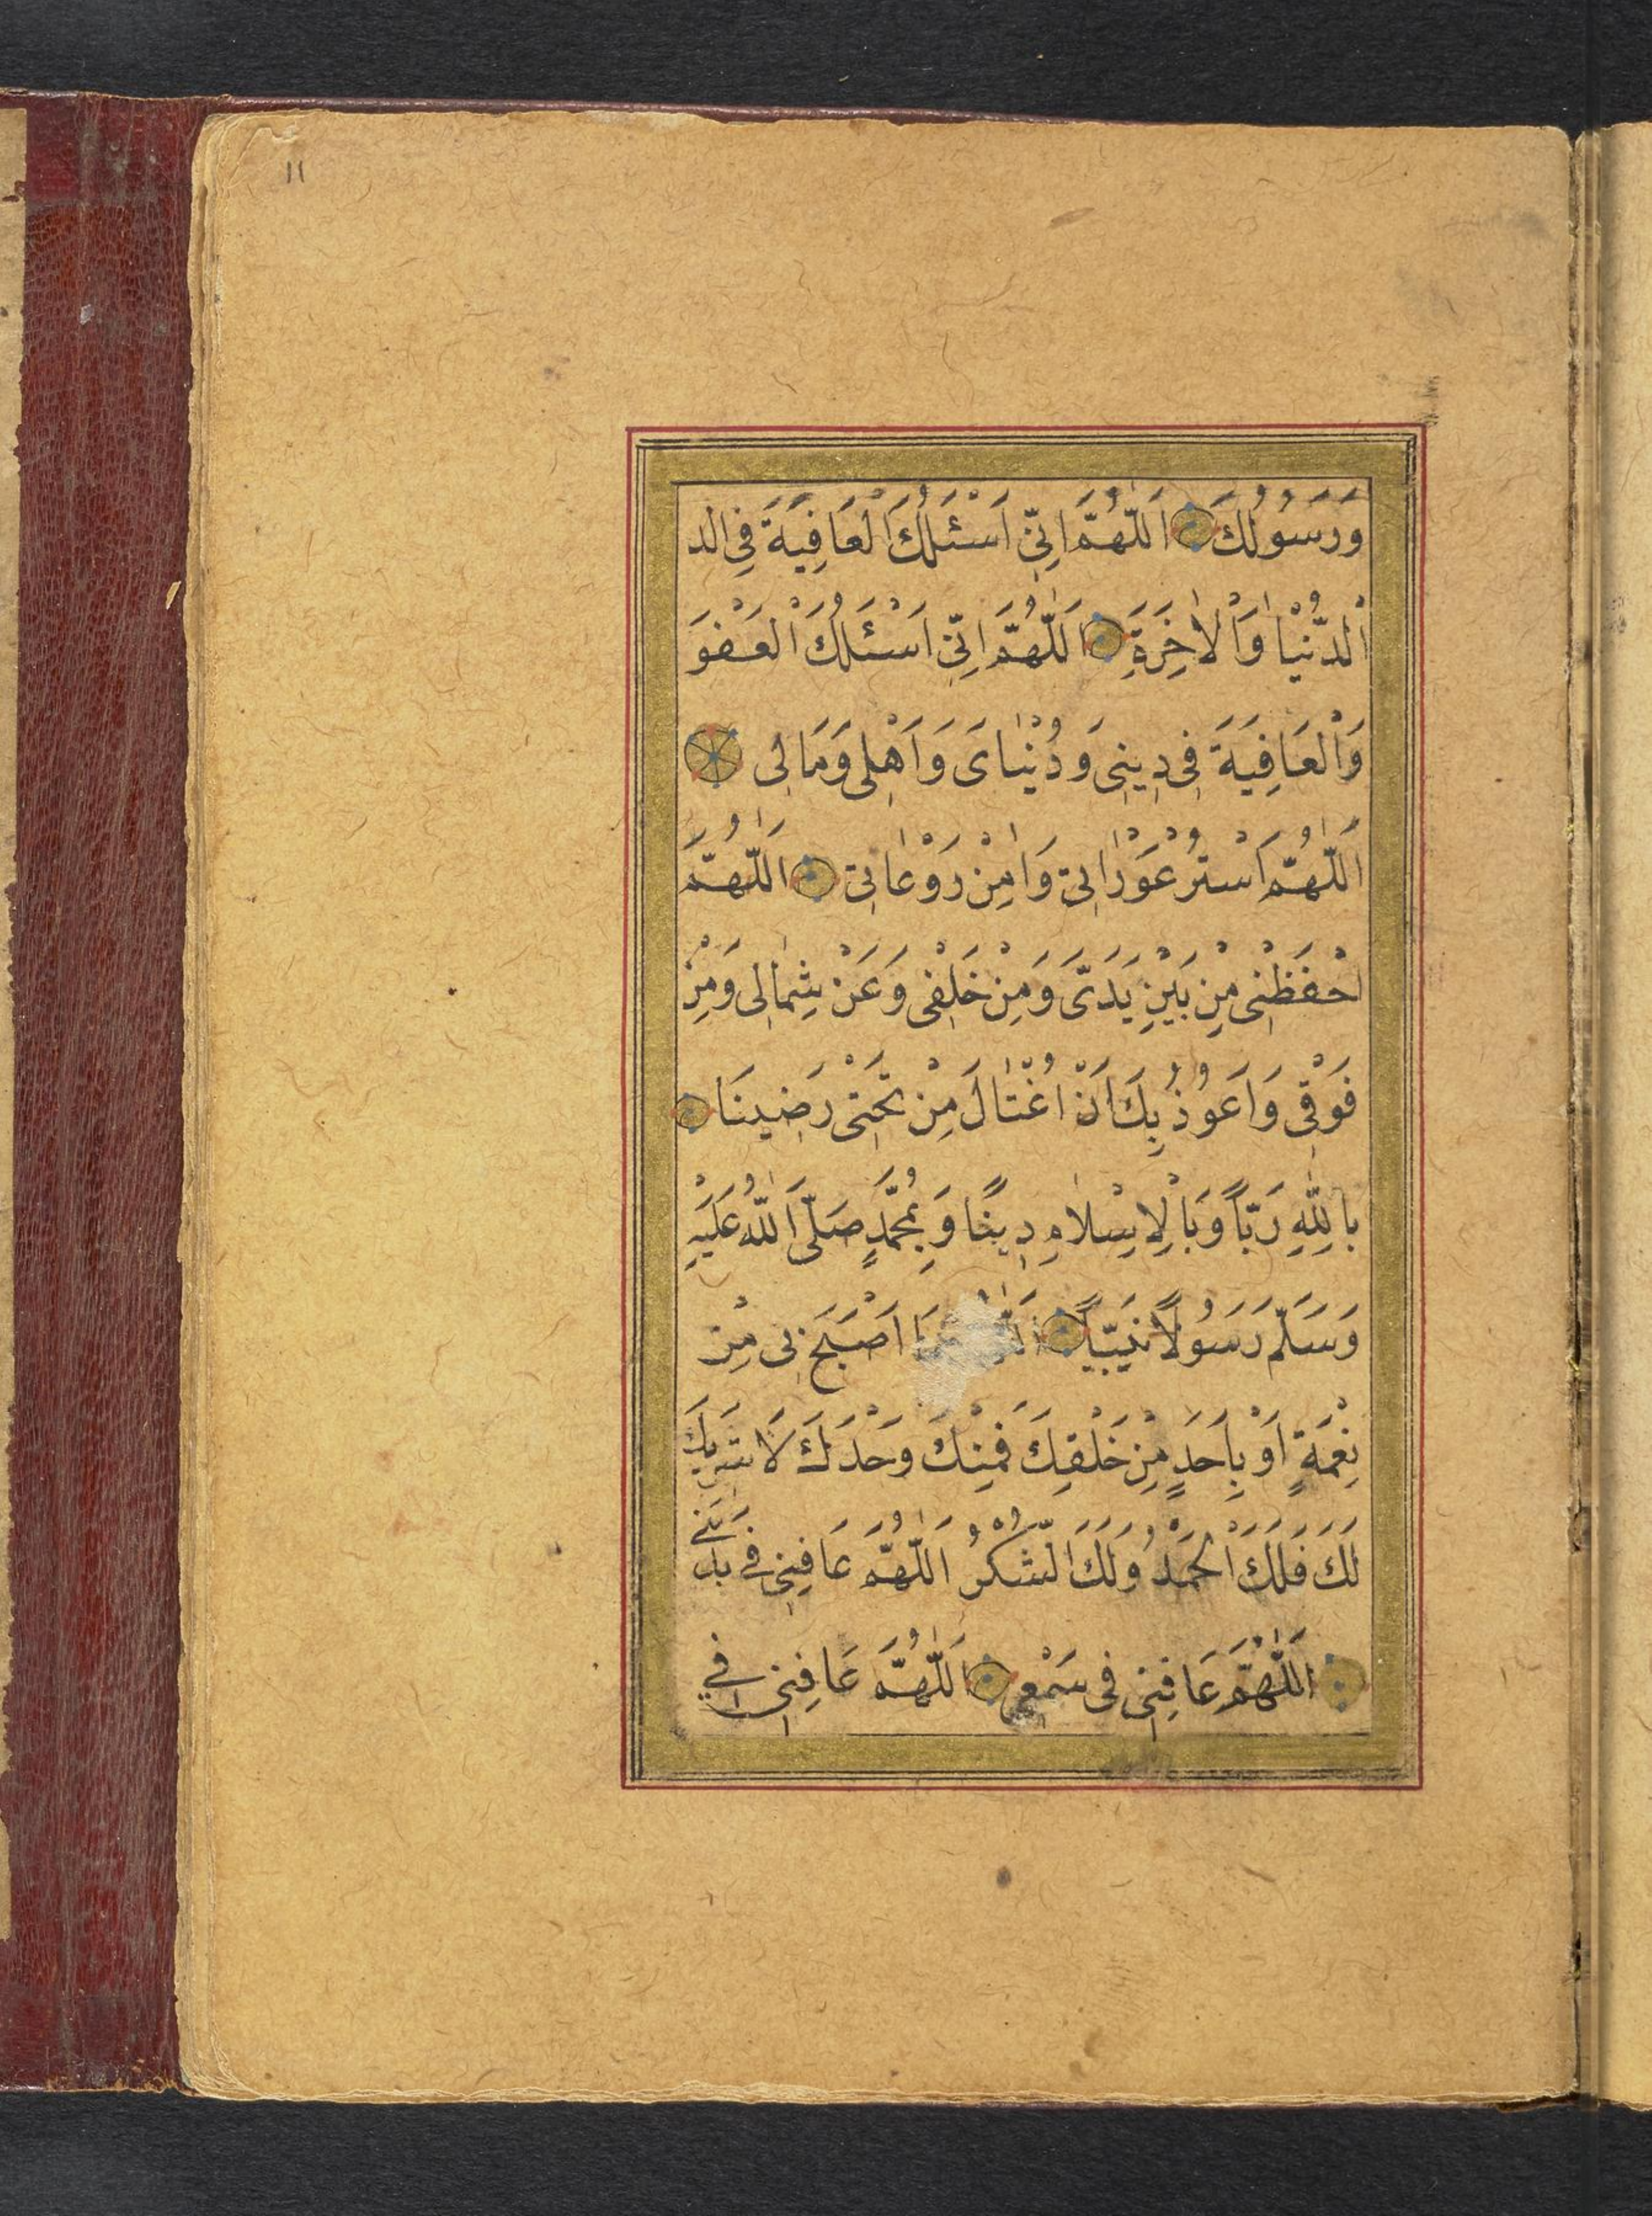 ١١
وَرَسُولُكَ اَللّٰهُمَّ اِنِّى اَسْئَلُكَ الْعَافِيَةَ فِى الد
اْلدُّنْيٰا وَاْلاٰخِرَةِ اَللّٰهُمَّ اِنِّى اَسْئَلُكَ الْعَفْوَ
وَاْلعَافِيَةَ فِى دِينِى وَدُنْيٰاىَ وَاَهْلِى وَمَالِى
اَللّٰهُمَّ اسْتُرْ عَوْرٰاتِى وَاٰمِنْ رَوْعٰاتِى اَللّٰهُمَّ
احْفَظْنِى مِنْ بَيْنِ يَدَىَّ وَمِنْ خَلْفِى وَعَنْ شِمٰالِى وَمِنْ
فَوْقِى وَاَعُوذُ بِكَ اَنْ اُغْتٰالَ مِنْ تَحْتِى رَضِينَا
بِاللّٰهِ رَبّاً وَبِاْلاِسْلاٰمِ دِينًا وَبِمُحَمَّدٍ صَلَّى اللّٰهُ عَلَيْهِ
وَسَلَّمَ رَسُولاً نَبِيّاً مَا اَصْبَحَ بِى مِنْ
نِعْمَةٍ اَوْ بِاَحَدٍ مِنْ خَلْقِكَ فَمِنْكَ وَحْدَكَ لَا شَرِيكَ
لَكَ فَلَكَ اْلحَمْدُ وَلَكَ الشُّكْرُ اَللّٰهُمَّ عَافِنِى فِى بَدَنِى
اَللّٰهُمَّ عَافِنِى فِى سَمْعِى اَللّٰهُمَّ عَافِنِى فِى